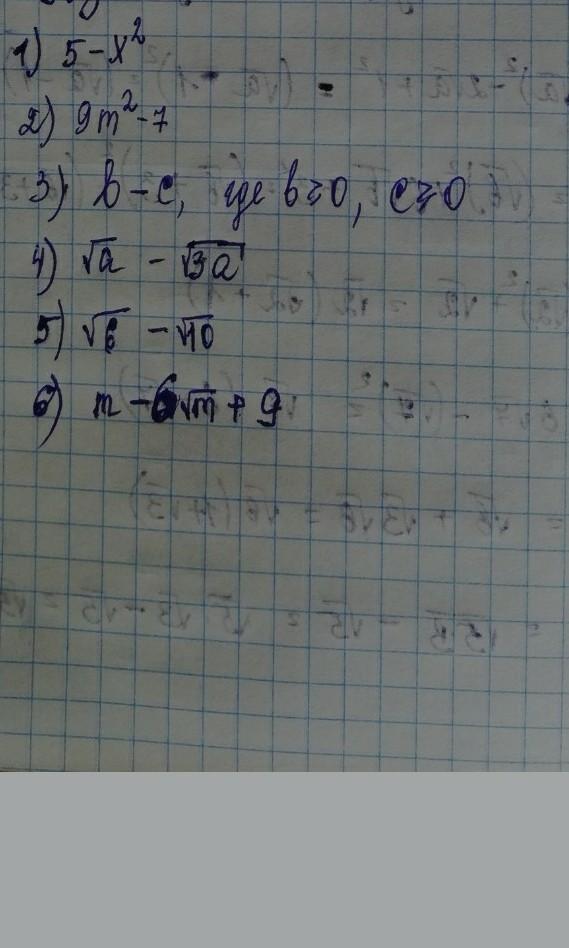 1) 5 - x²
2) 9m² - 7
3) b - c, где b ≥ 0, c ≥ 0
4) √a - √3a
5) √6 - √10
6) m - 6√m + 9